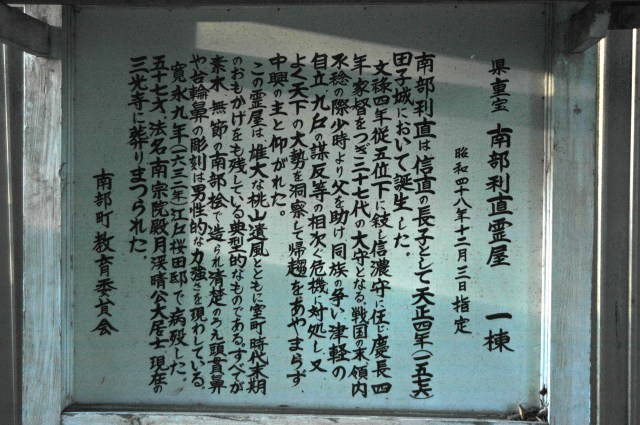 県重宝 南部利直霊屋 一棟
昭和四十八年十二月三日指定
南部利直は信直の長子として天正四年(一五七六)
田子城において誕生した。
文禄四年従五位下に叙し信濃守に任じ慶長四
年家督をつぎ二十七代の大守となる。戦国の末領内
不穏の際少時より父を助け同族の争い津軽の
自立、九戸の謀反等の相次ぐ危機に対処し又
よく天下の大勢を洞察して帰趨をあやまらず
中興の主と仰がれた。
この霊屋は雄大な桃山遺風とともに室町時代末期
のおもかげをも残している典型的なものである。すべてが
素木、無節の南部桧で造られ清楚のうえ頭貫鼻
や台輪鼻の彫刻は男性的な力強さを現わしている。
寛永九年(一六三二年)江戸桜田邸で病歿した。
五十七才、法名南宗院殿月渓晴公大居士、現在の
三光寺に葬りまつられた。
南部町教育委員会